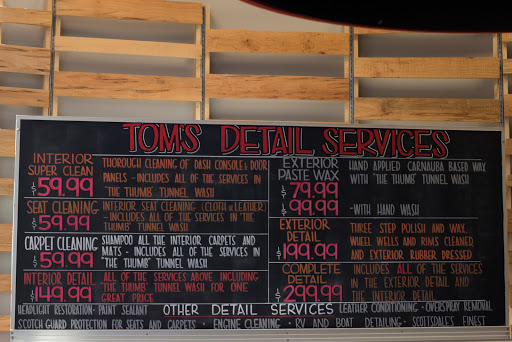 TOMS DETAIL SERVICES
INTERIOR
SUPER CLEAN
$59.99
THOROUGH CLEANING OF DASH CONSOLE & DOOR
PANELS - INCLUDES ALL OF THE SERVICES IN
"THE THUMB" TUNNEL WASH
SEAT CLEANING
$59.99
INTERIOR SEAT CLEANING (CLOTH OR LEATHER)
- INCLUDES ALL OF THE SERVICES IN "THE
THUMB" TUNNEL WASH
CARPET CLEANING
$59.99
SHAMPOO ALL THE INTERIOR CARPETS AND
MATS - INCLUDES ALL OF THE SERVICES IN
"THE THUMB" TUNNEL WASH
INTERIOR DETAIL
$149.99
ALL OF THE SERVICES ABOVE INCLUDING
"THE THUMB" TUNNEL WASH FOR ONE
GREAT PRICE
EXTERIOR
PASTE WAX
$79.99
$99.99
HAND APPLIED CARNAUBA BASED WAX
WITH "THE THUMB" TUNNEL WASH
-WITH HAND WASH
EXTERIOR
DETAIL
$199.99
THREE STEP POLISH AND WAX,
WHEEL WELLS AND RIMS CLEANED
AND EXTERIOR RUBBER DRESSED
COMPLETE
DETAIL
$299.99
INCLUDES ALL OF THE SERVICES
IN THE EXTERIOR DETAIL AND
THE INTERIOR DETAIL
OTHER DETAIL SERVICES
HEADLIGHT RESTORATION - PAINT SEALANT
LEATHER CONDITIONING - OVERSPRAY REMOVAL
SCOTCH GUARD PROTECTION FOR SEATS AND CARPETS - ENGINE CLEANING - RV AND BOAT DETAILING - SCOTTSDALE'S FINEST